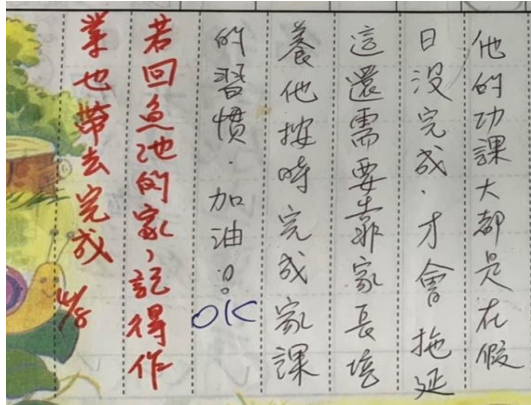 他的功課大都是在假
日沒完成.才會拖延
這還需要靠家長培
養他按時完成家課
的習慣.加油!!
OK
若回魚池的家,記得作
業也帶去完成